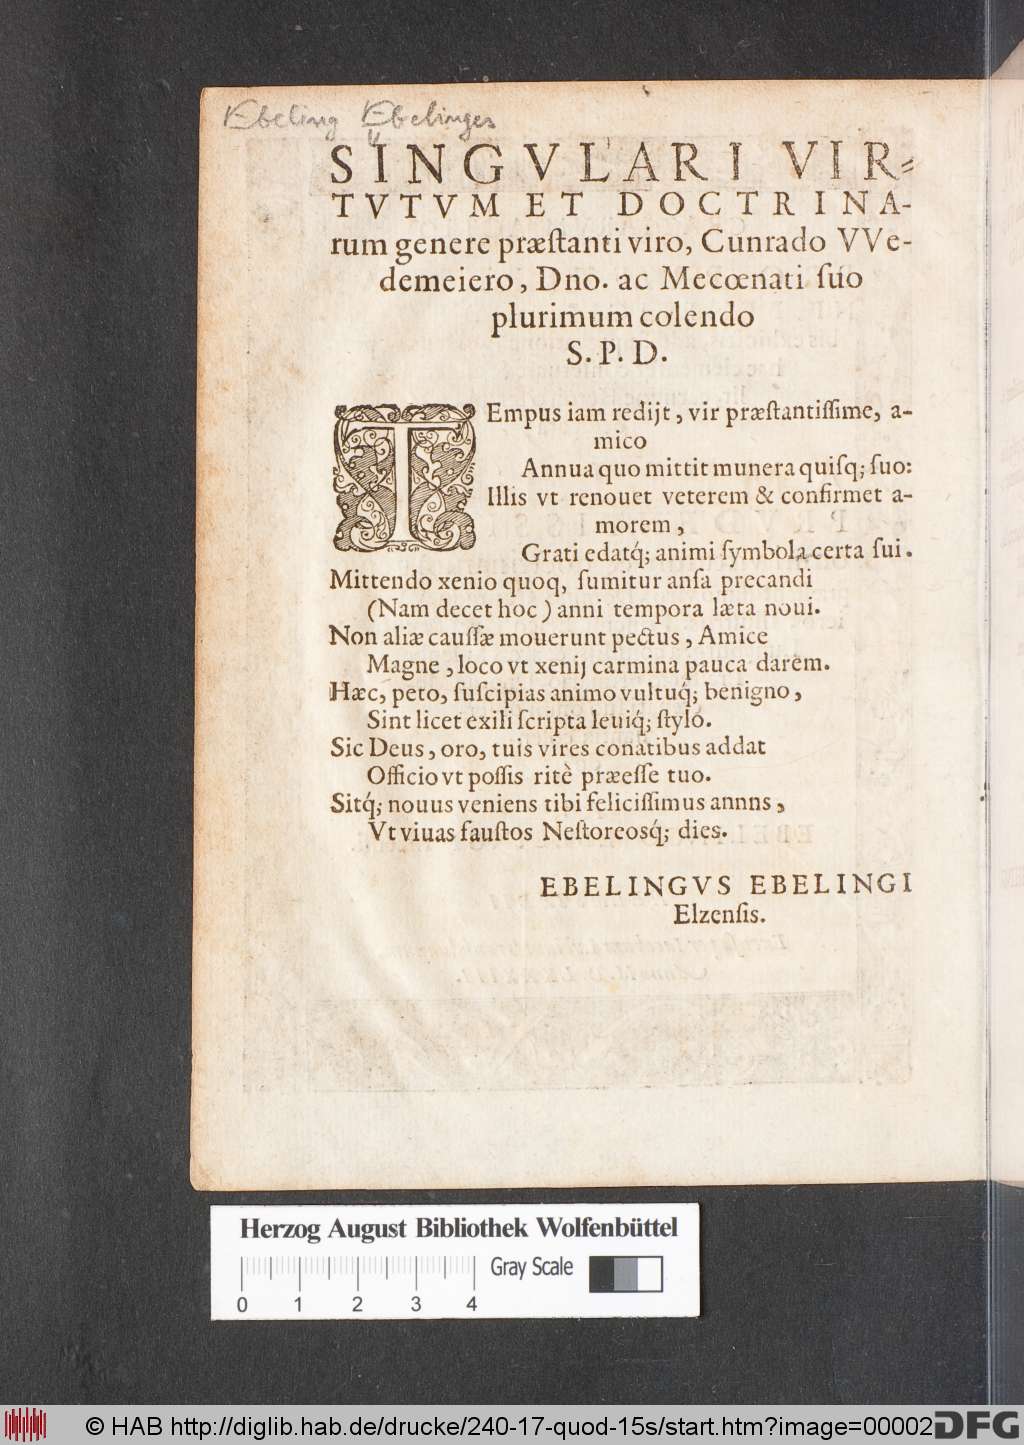 Ebeling Ebelinges
SINGVLARI VIR⸗
TVTVM ET DOCTRINA-
rum genere præſtanti viro, Cunrado VVe-
demeiero, Dno. ac Mecœnati ſuo
plurimum colendo
S. P. D.
TEmpus iam redijt, vir præſtantiſſime, a-
mico
Annua quo mittit munera quiſq; ſuo:
Illis vt renouet veterem & confirmet a-
morem,
Grati edatq́; animi ſymbola certa ſui.
Mittendo xenio quoq, ſumitur anſa precandi
(Nam decet hoc) anni tempora læta noui.
Non aliæ cauſſæ mouerunt pectus, Amice
Magne, loco vt xenij carmina pauca darem.
Hæc, peto, ſuſcipias animo vultuq́; benigno,
Sint licet exili ſcripta leuiq́; ſtylo.
Sic Deus, oro, tuis vires conatibus addat
Officio vt poſſis ritè præeſſe tuo.
Sitq́; nouus veniens tibi feliciſſimus annns,
Vt viuas fauſtos Neſtoreosq́; dies.
EBELINGVS EBELINGI
Elzenſis.
Herzog August Bibliothek Wolfenbüttel
0 1 2 3 4 Gray Scale
© HAB http://diglib.hab.de/drucke/240-17-quod-15s/start.htm?image=00002 DFG